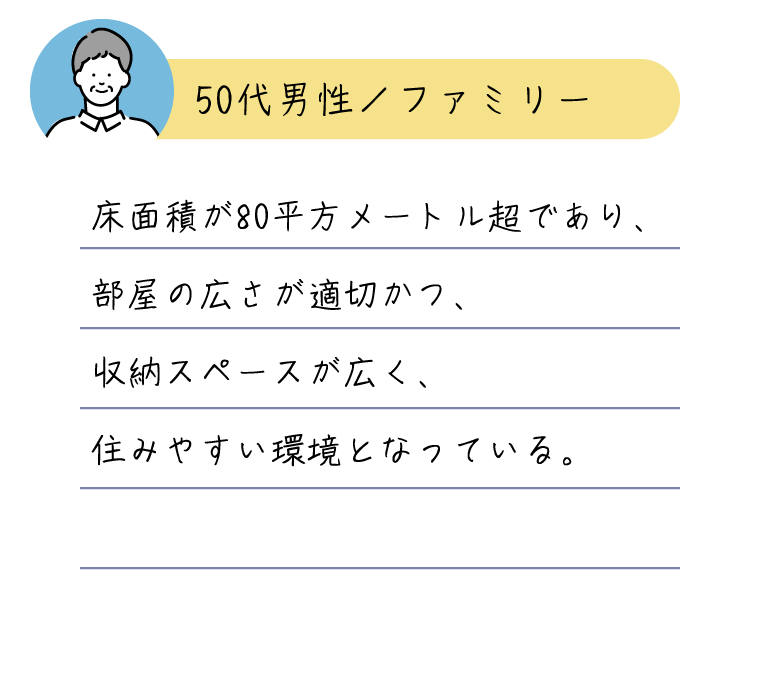 50代男性／ファミリー
床面積が80平方メートル超であり、
部屋の広さが適切かつ、
収納スペースが広く、
住みやすい環境となっている。